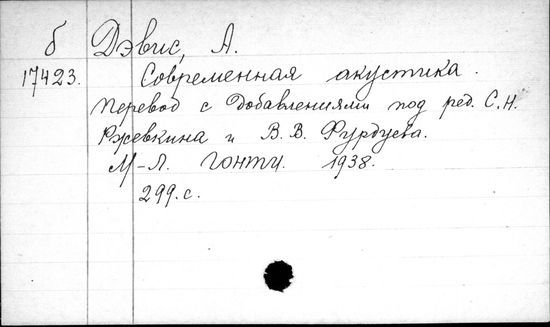 б Дэвис, А.
17423. Современная акустика.
Перевод с добавлениями под ред. С.Н.
Ржевкина и В. В. Фурдуева.
М-Л. ГОНТИ. 1938.
299.с.